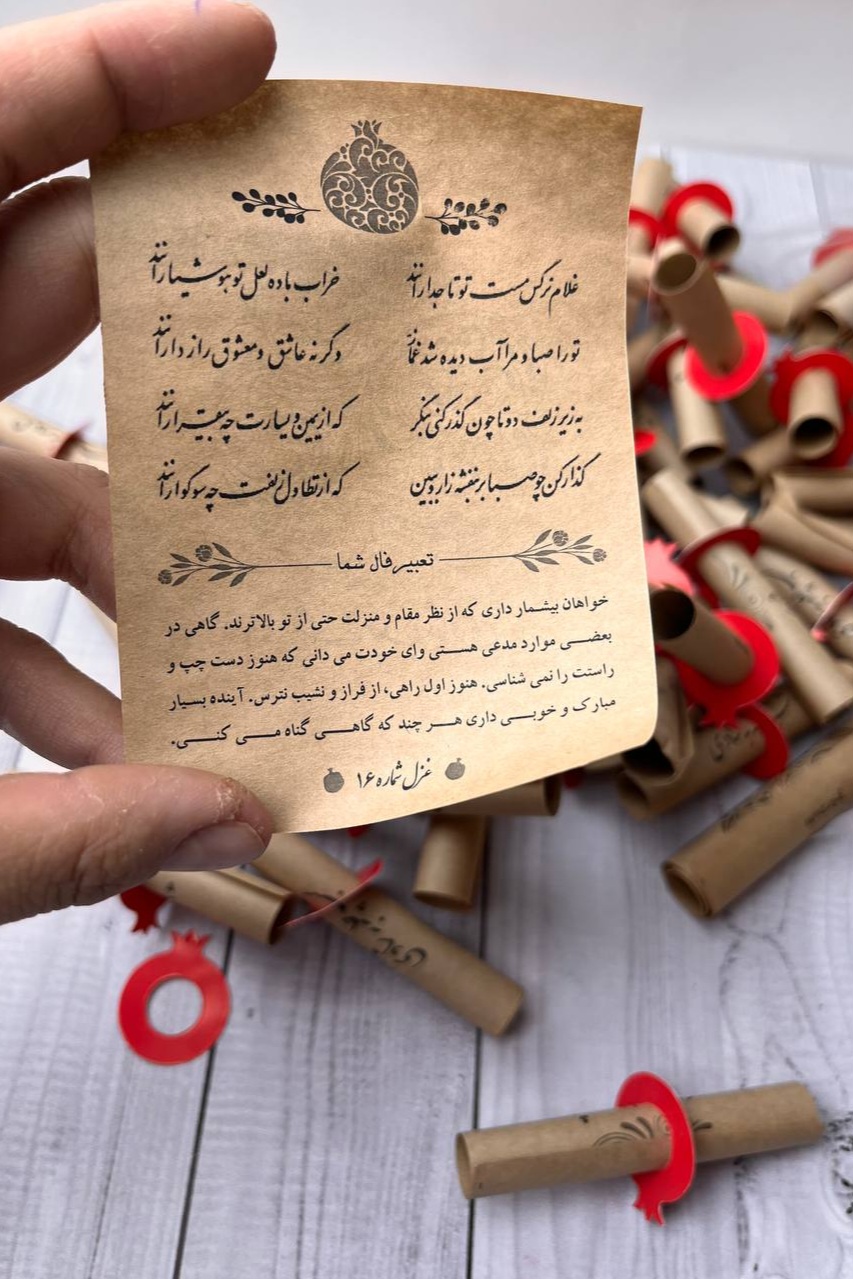 غلام نرگس مست تو تاجدارانند خراب باده لعل تو هوشیارانند
تو را صبا و مرا آب دیده شد غماز وگرنه عاشق و معشوق رازدارانند
به زیر زلف دوتا چون گذر کنی بنگر که از یمین و یسارت چه بیقرارانند
گذار کن چو صبا بر بنفشه زار و ببین که از تطاول زلفت چه سوگوارانند
تعبیر فال شما
خواهان بیشمار داری که از نظر مقام و منزلت حتی از تو بالاترند. گاهی در
بعضی موارد مدعی هستی وای خودت می دانی که هنوز دست چپ و
راستت را نمی شناسی. هنوز اول راهی، از فراز و نشیب نترس. آینده بسیار
مبارک و خوبی داری هر چند که گاهی گناه می کنی.
غزل شماره ۱۶